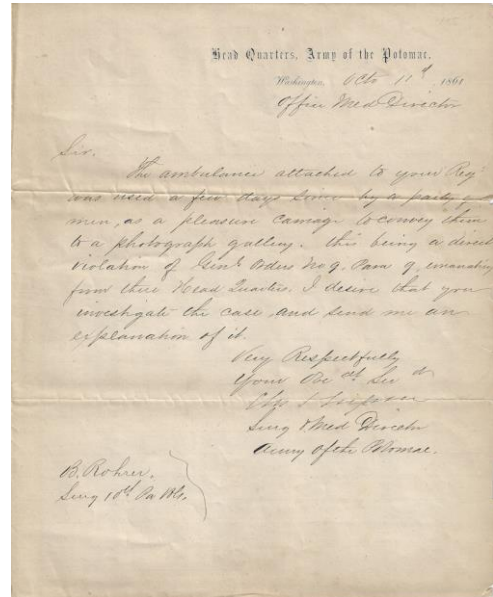 Head Quarters, Army of the Potomac.
Washington, Octo 11th 1861
Office Med Director
Sir.
The ambulance attached to your Regt
was used a few days since by a party of
men, as a pleasure carriage to convey them
to a photograph gallery. this being a direct
violation of Genl Orders No 9. Para 9. emanating
from these Head Quarters. I desire that you
investigate the case, and send me an
explanation of it.
Very Respectfully
Your Obt Servt
Chas S Tripler
Surg & Med Director
Army of the Potomac.
B. Rohrer.
Surg 10th Pa